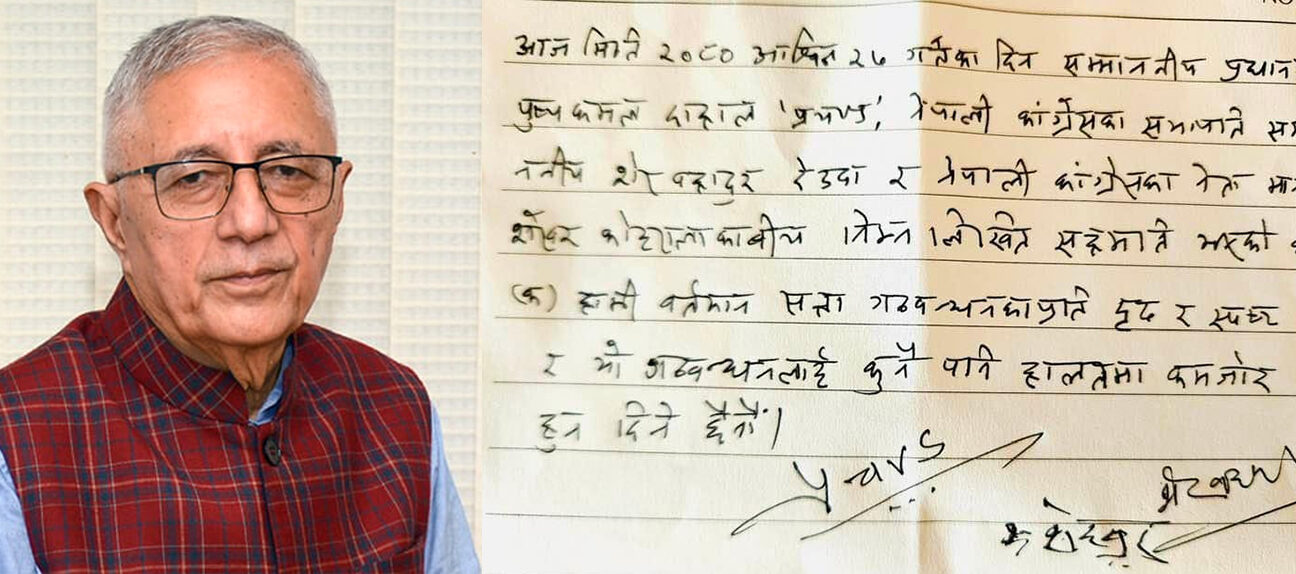 आज मिति २०८० आश्विन २६ गतेका दिन सम्माननीय प्रधान
पुष्पकमल दाहाल 'प्रचण्ड', नेपाली कांग्रेसका सभापति सम
ननीय शेर बहादुर देउवा र नेपाली कांग्रेसका नेता मा
शेखर कोइरालाकाबीच निम्न लिखित सहमति भएको
(क) हामी वर्तमान सत्ता गठबन्धनकाप्रति दृढ र स्पष्ट
र यो गठबन्धनलाई कुनै पनि हालतमा कमजोर
हुन दिने छैनौं।
प्रचण्ड